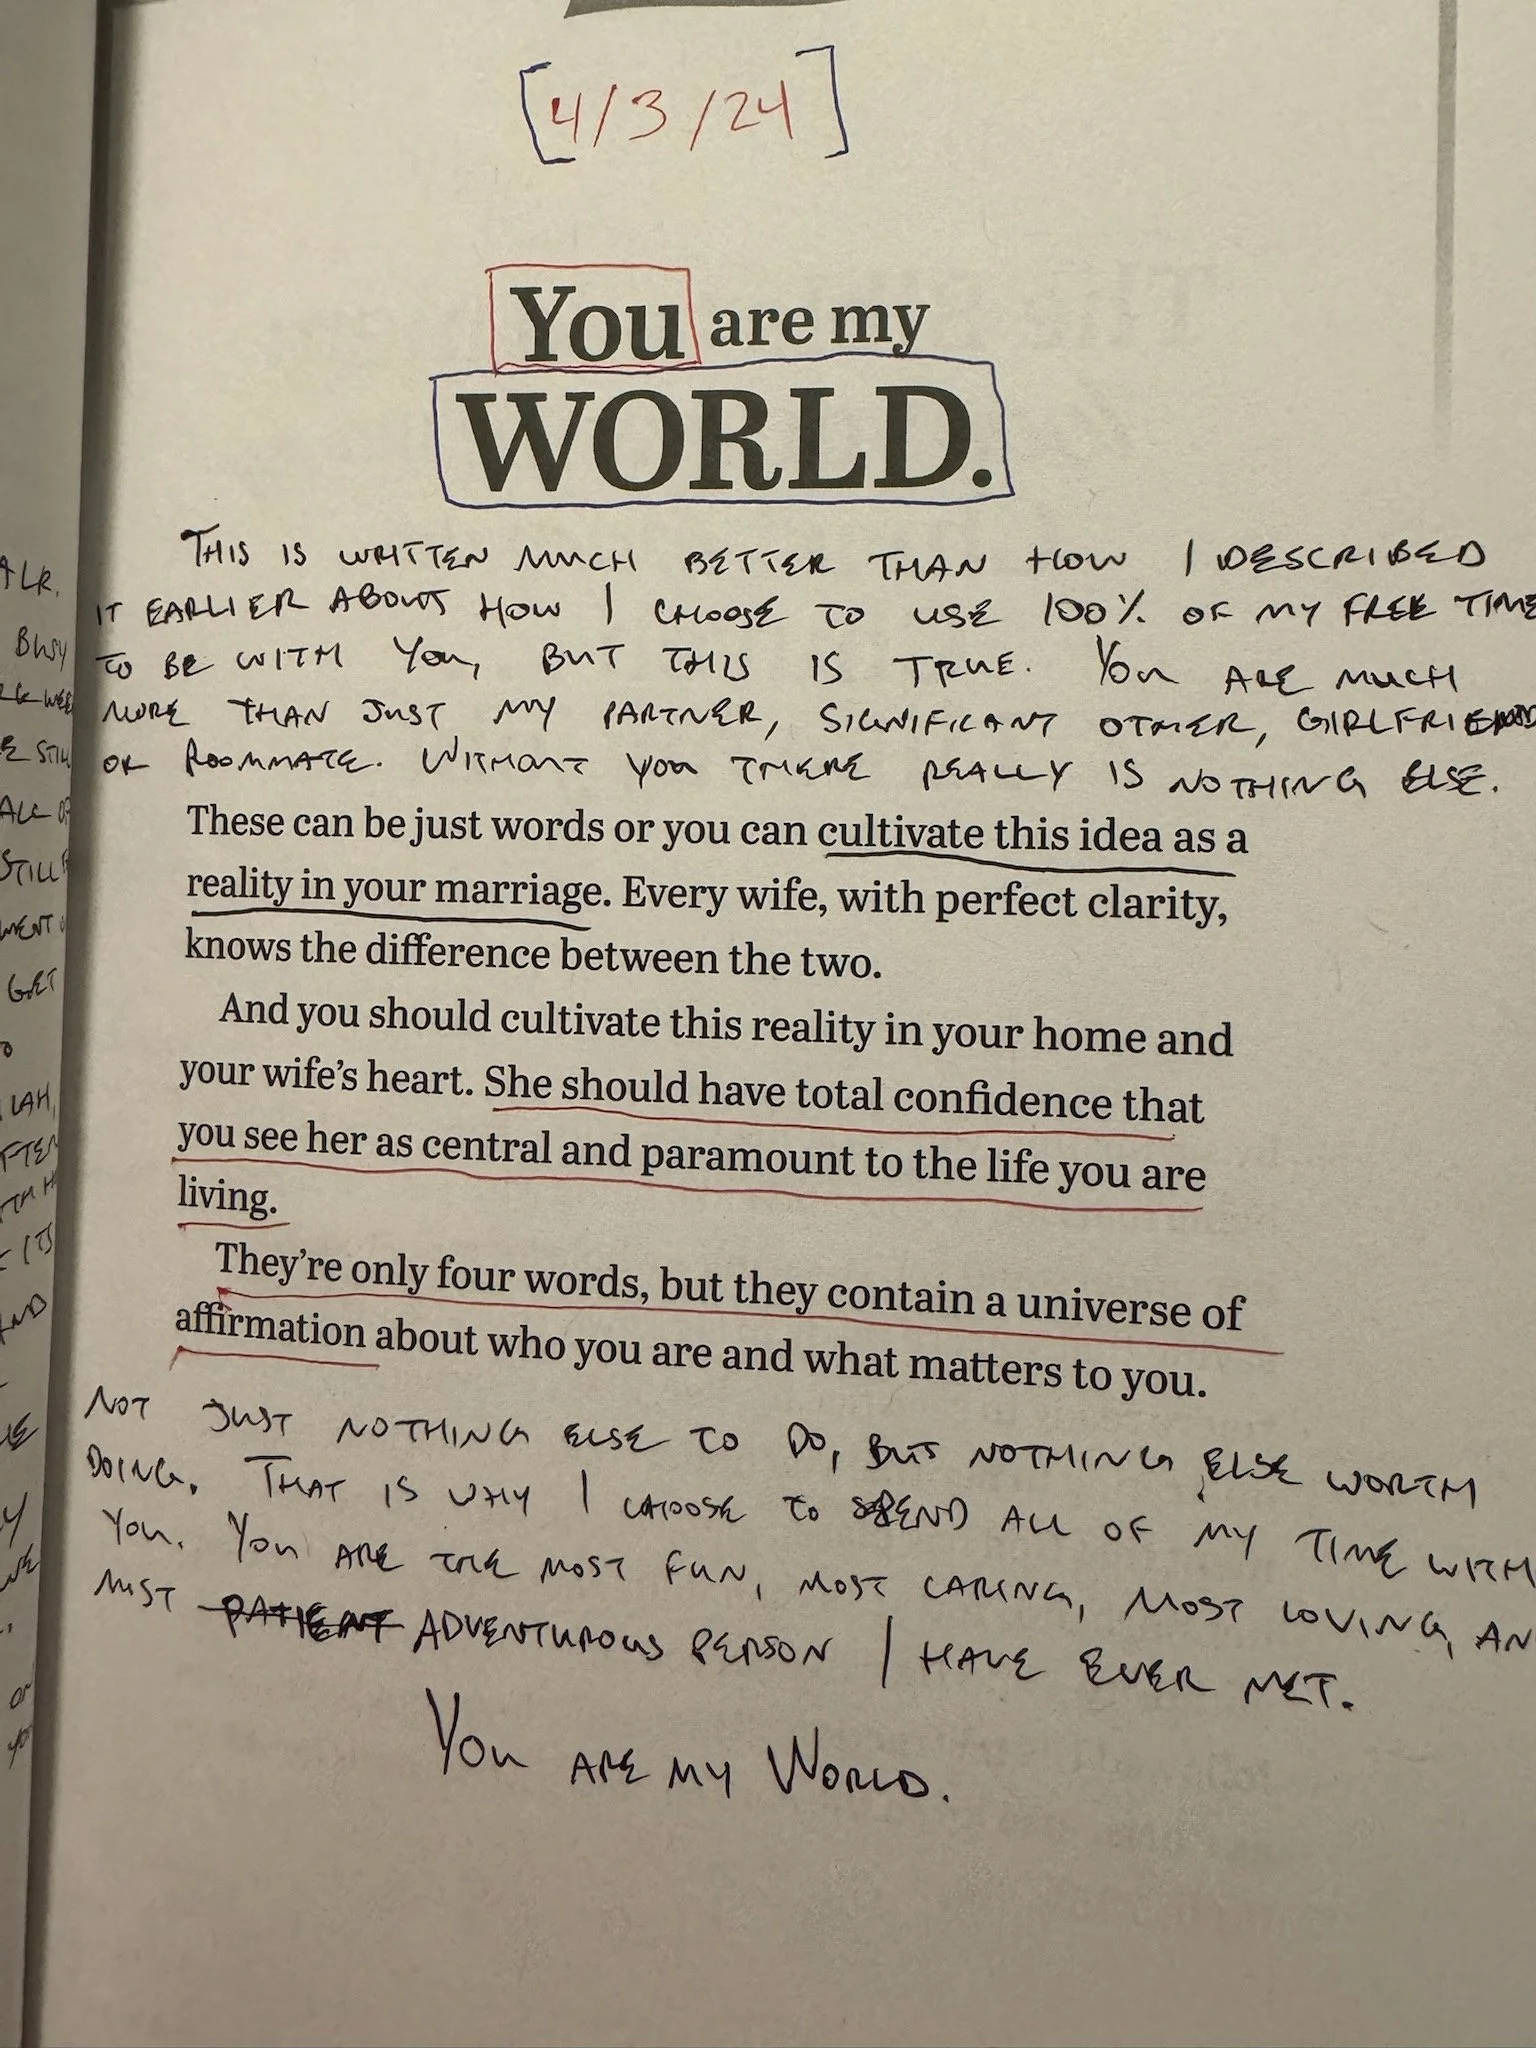 [4/3/24]
You are my
WORLD.
THIS IS WRITTEN MUCH BETTER THAN HOW I DESCRIBED
IT EARLIER ABOUT HOW I CHOOSE TO USE 100% OF MY FREE TIME
TO BE WITH YOU, BUT THIS IS TRUE. YOU ARE MUCH
MORE THAN JUST MY PARTNER, SIGNIFICANT OTHER, GIRLFRIEND
OR ROOMMATE. WITHOUT YOU THERE REALLY IS NOTHING ELSE.
These can be just words or you can cultivate this idea as a
reality in your marriage. Every wife, with perfect clarity,
knows the difference between the two.
And you should cultivate this reality in your home and
your wife's heart. She should have total confidence that
you see her as central and paramount to the life you are
living.
They're only four words, but they contain a universe of
affirmation about who you are and what matters to you.
NOT JUST NOTHING ELSE TO DO, BUT NOTHING ELSE WORTH
DOING. THAT IS WHY I CHOOSE TO SPEND ALL OF MY TIME WITH
YOU. YOU ARE THE MOST FUN, MOST CARING, MOST LOVING, AN
MOST PATIENT ADVENTUROUS PERSON I HAVE EVER MET.
YOU ARE MY WORLD.
ALK.
BUSY
E STILL
ALL OF
STILL
GET
LAH,
AND